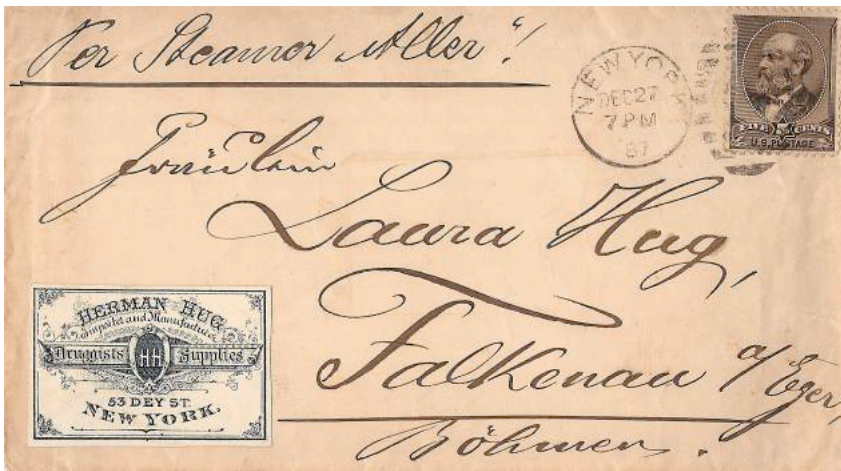 Per Steamer "Aller"!
NEW YORK
DEC 27
7 PM
87
FIVE 5 CENTS
U.S. POSTAGE
Fräulein
Laura Hug,
Falkenau a/Eger,
Böhmen.
HERMAN HUG
Importer and Manufacturer
Druggists HH Supplies
53 DEY ST.
NEW YORK.